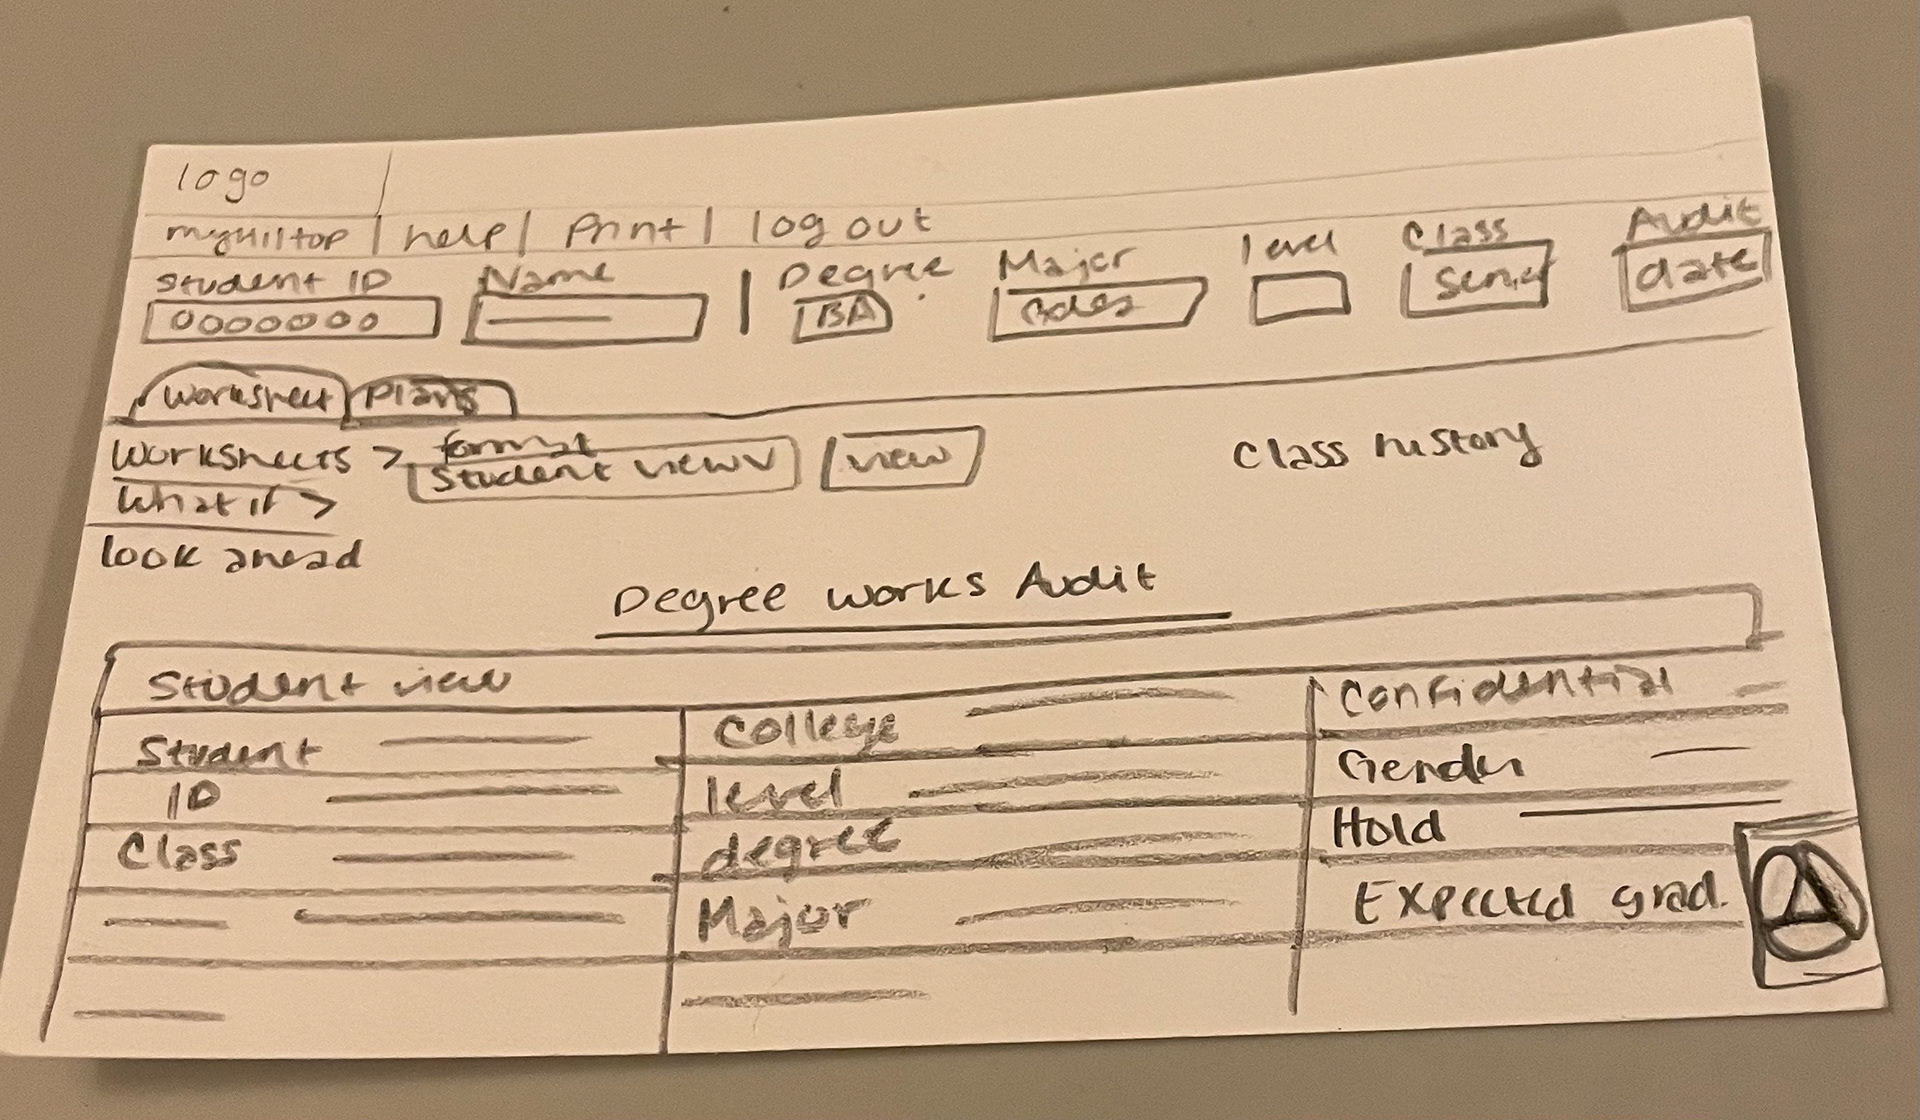 logo
myHilltop | help | Print | log out
Student ID Name Degree Major level Class Audit
0000000 BA date
Worksheet Plans
Worksheets > format
Student view v view Class history
What if >
look ahead
Degree works Audit
Student view
Student College Confidential
ID level Gender
Class degree Hold
Major Expected grad.